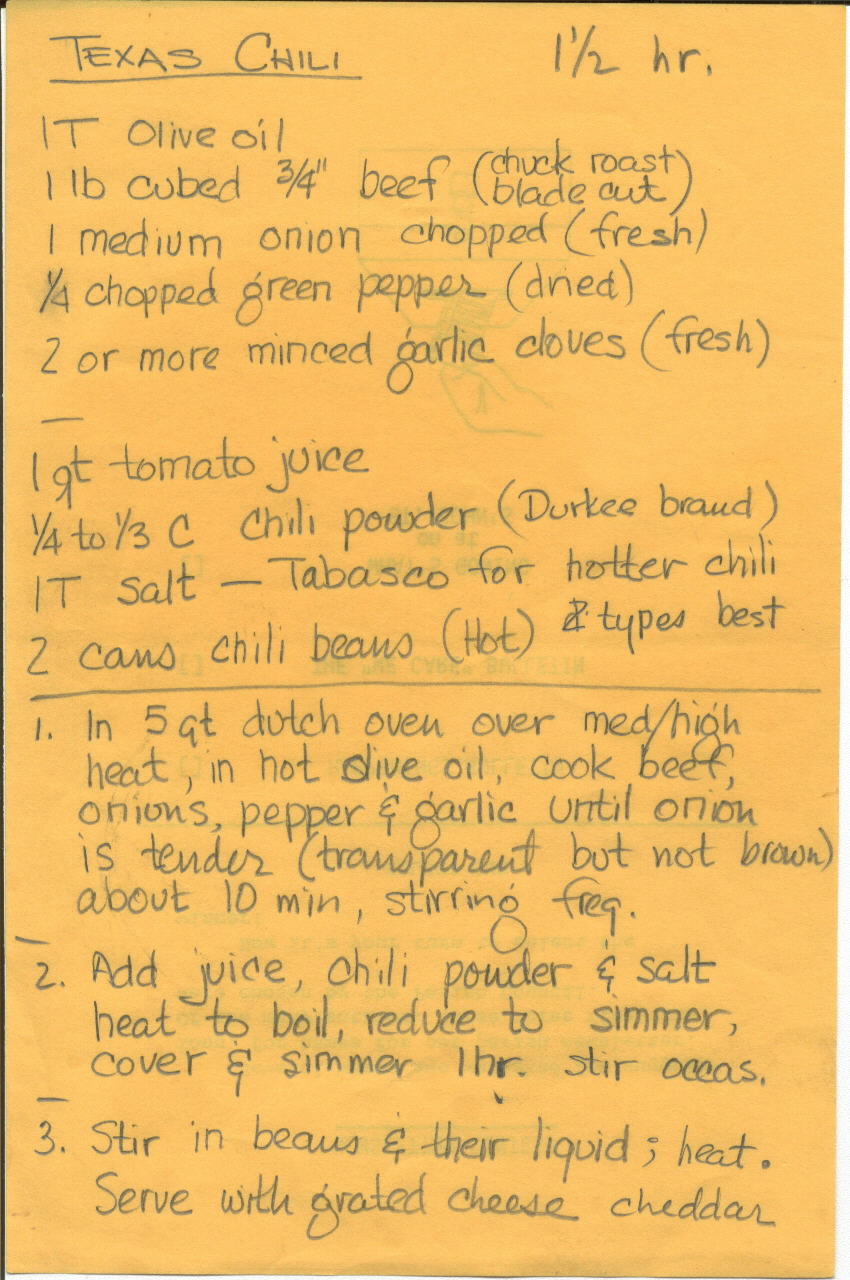 TEXAS CHILI 1 1/2 hr.
1T Olive oil
1 lb cubed 3/4" beef (chuck roast blade cut)
1 medium onion chopped (fresh)
1/4 chopped green pepper (dried)
2 or more minced garlic cloves (fresh)
—
1 qt tomato juice
1/4 to 1/3 C Chili powder (Durkee brand)
1T Salt — Tabasco for hotter chili
2 cans chili beans (Hot) 2 types best
1. In 5 qt dutch oven over med/high
heat, in hot olive oil, cook beef,
onions, pepper & garlic until onion
is tender (transparent but not brown)
about 10 min, stirring freq.
2. Add juice, chili powder & salt
heat to boil, reduce to simmer,
cover & simmer 1 hr. stir occas.
3. Stir in beans & their liquid; heat.
Serve with grated cheese cheddar